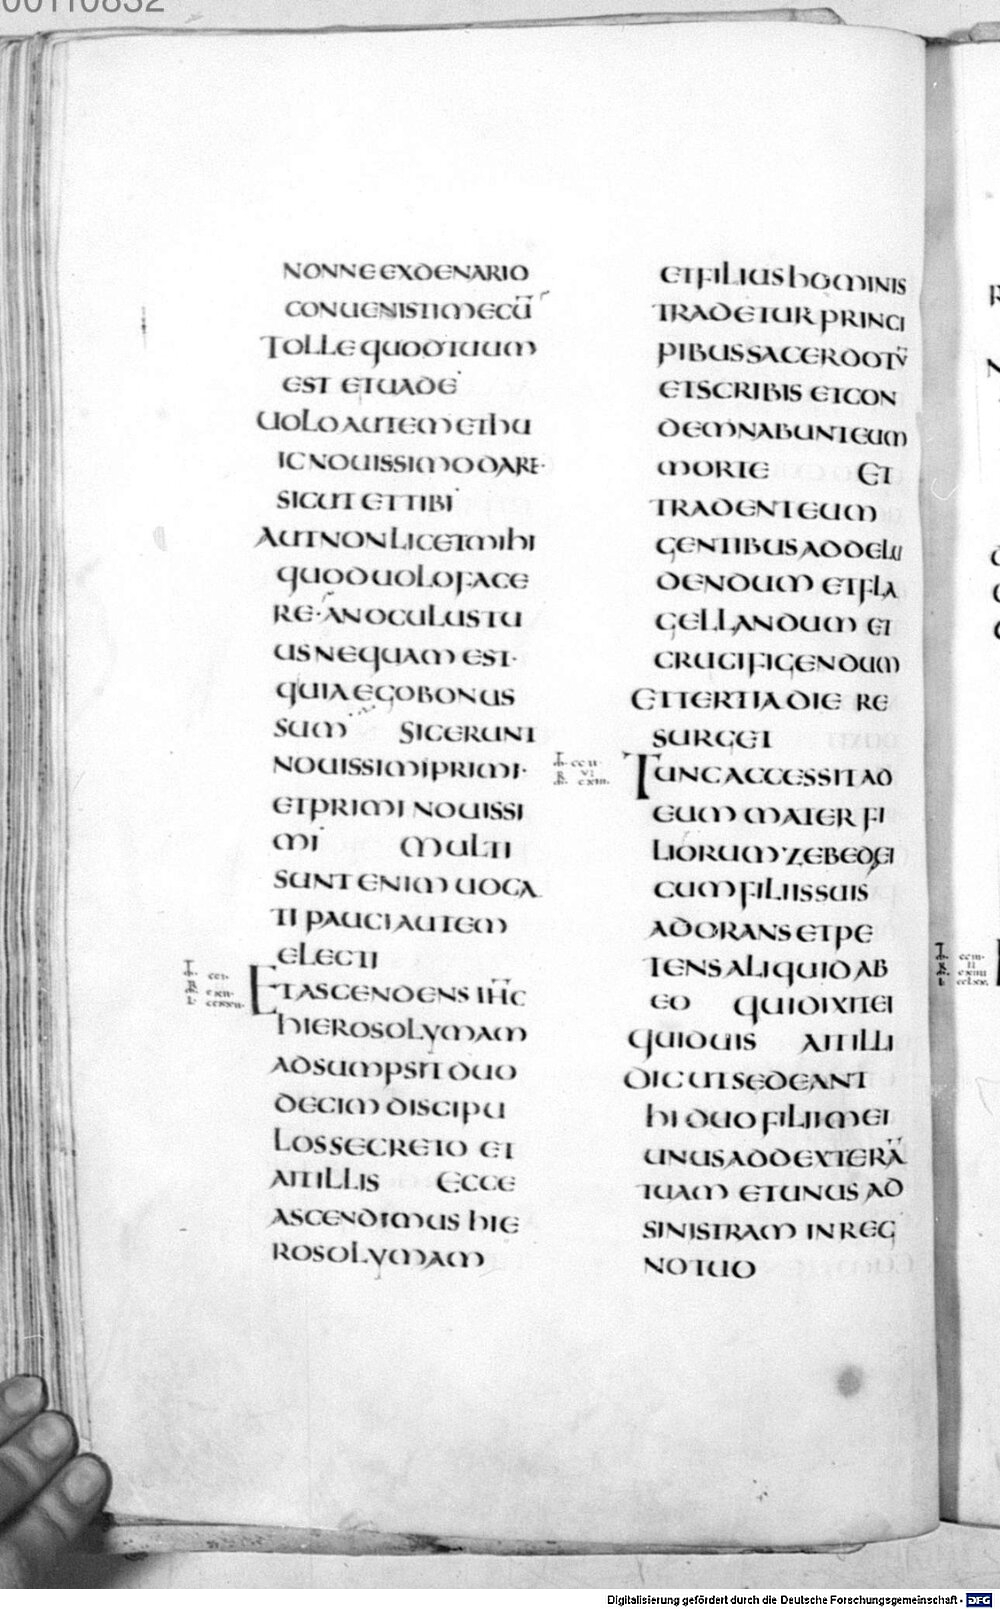 00110832
NONNEEXDENARIO
CONUENISTIMECŪ
TOLLEQUODTUUM
EST ETUADE
UOLOAUTEMETHU
ICNOUISSIMODARE·
SICUT ETTIBI
AUTNONLICETMIHI
QUODUOLOFACE
RE·ANOCULUSTU
USNEQUAMEST·
QUIAEGOBONUS
SUM SICERUNT
NOUISSIMIPRIMI·
ETPRIMINOUISSI
MI MULTI
SUNTENIMUOCA
TIPAUCIAUTEM
ELECTI
ETASCENDENSIHC
HIEROSOLYMAM
ADSUMPSITDUO
DECIMDISCIPU
LOSSECRETO ET
AITILLIS ECCE
ASCENDIMUS HIE
ROSOLYMAM
ETFILIUSHOMINIS
TRADETURPRINCI
PIBUSSACERDOTŪ
ETSCRIBIS ETCON
DEMNABUNTEUM
MORTE ET
TRADENTEUM
GENTIBUSADDELU
DENDUM ETFLA
GELLANDUM ET
CRUCIFIGENDUM
ETTERTIADIE RE
SURGET
TUNCACCESSITAD
EUMMATERFI
LIORUMZEBEDEI
CUMFILIISSUIS
ADORANSETPE
TENSALIQUIDAB
EO QUIDIXITEI
QUIDUIS AITILLI
DICUTSEDEANT
HIDUOFILIIMEI
UNUSADDEXTERĀ
TUAM ETUNUSAD
SINISTRAM INREG
NOTUO
Digitalisierung gefördert durch die Deutsche Forschungsgemeinschaft - DFG